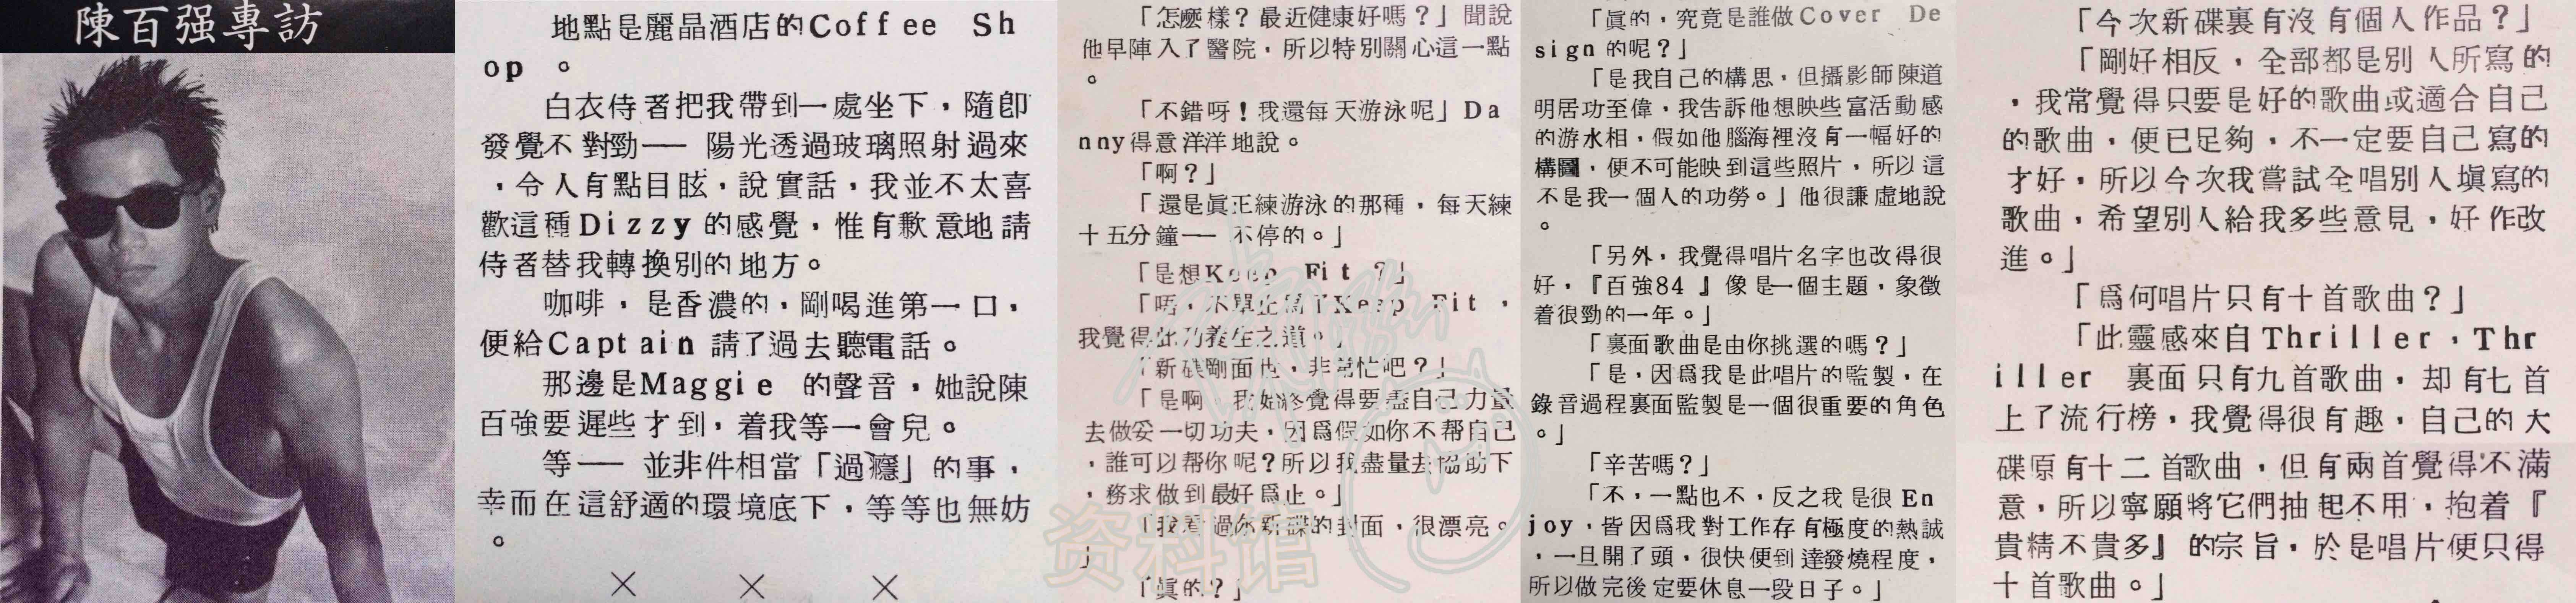 陳百强專訪
地點是麗晶酒店的Coffee Sh
op 。
白衣侍者把我帶到一處坐下，隨卽
發覺不對勁── 陽光透過玻璃照射過來
，令人有點目眩，說實話，我並不太喜
歡這種Dizzy的感覺，惟有歉意地請
侍者替我轉換別的地方。
咖啡，是香濃的，剛喝進第一口，
便給Captain 請了過去聽電話。
那邊是Maggie 的聲音，她說陳
百強要遲些才到，着我等一會兒。
等── 並非件相當「過癮」的事，
幸而在這舒適的環境底下，等等也無妨
。
× × ×
「怎麽樣？最近健康好嗎？」聞說
他早陣入了醫院，所以特別關心這一點
。
「不錯呀！我還每天游泳呢」Da
nny得意洋洋地說。
「啊？」
「還是眞正練游泳的那種，每天練
十五分鐘── 不停的。」
「是想Keep Fit？」
「唔，不單止爲了Keep Fit，
我覺得此乃養生之道。」
「新碟剛面世，非常忙吧？」
「是啊，我始終覺得要盡自己力量
去做妥一切功夫，因爲假如你不幫自己
，誰可以幫你呢？所以我盡量去協助下
，務求做到最好爲止。」
「我看過你新碟的封面，很漂亮。
」
「眞的？」
「眞的，究竟是誰做Cover De
sign的呢？」
「是我自己的構思，但攝影師陳道
明居功至偉，我告訴他想映些富活動感
的游水相，假如他腦海裡沒有一幅好的
構圖，便不可能映到這些照片，所以這
不是我一個人的功勞。」他很謙虛地說
。
「另外，我覺得唱片名字也改得很
好，『百強84』像是一個主題，象徵
着很勁的一年。」
「裏面歌曲是由你挑選的嗎？」
「是，因爲我是此唱片的監製，在
錄音過程裏面監製是一個很重要的角色
。」
「辛苦嗎？」
「不，一點也不，反之我是很En
joy，皆因爲我對工作存有極度的熱誠
，一旦開了頭，很快便到達發燒程度，
所以做完後定要休息一段日子。」
「今次新碟裏有沒有個人作品？」
「剛好相反，全部都是別人所寫的
，我常覺得只要是好的歌曲或適合自己
的歌曲，便已足夠，不一定要自己寫的
才好，所以今次我嘗試全唱別人塡寫的
歌曲，希望別人給我多些意見，好作改
進。」
「爲何唱片只有十首歌曲？」
「此靈感來自Thriller，Thr
iller 裏面只有九首歌曲，却有七首
上了流行榜，我覺得很有趣，自己的大
碟原有十二首歌曲，但有兩首覺得不滿
意，所以寧願將它們抽起不用，抱着『
貴精不貴多』的宗旨，於是唱片便只得
十首歌曲。」
资料馆